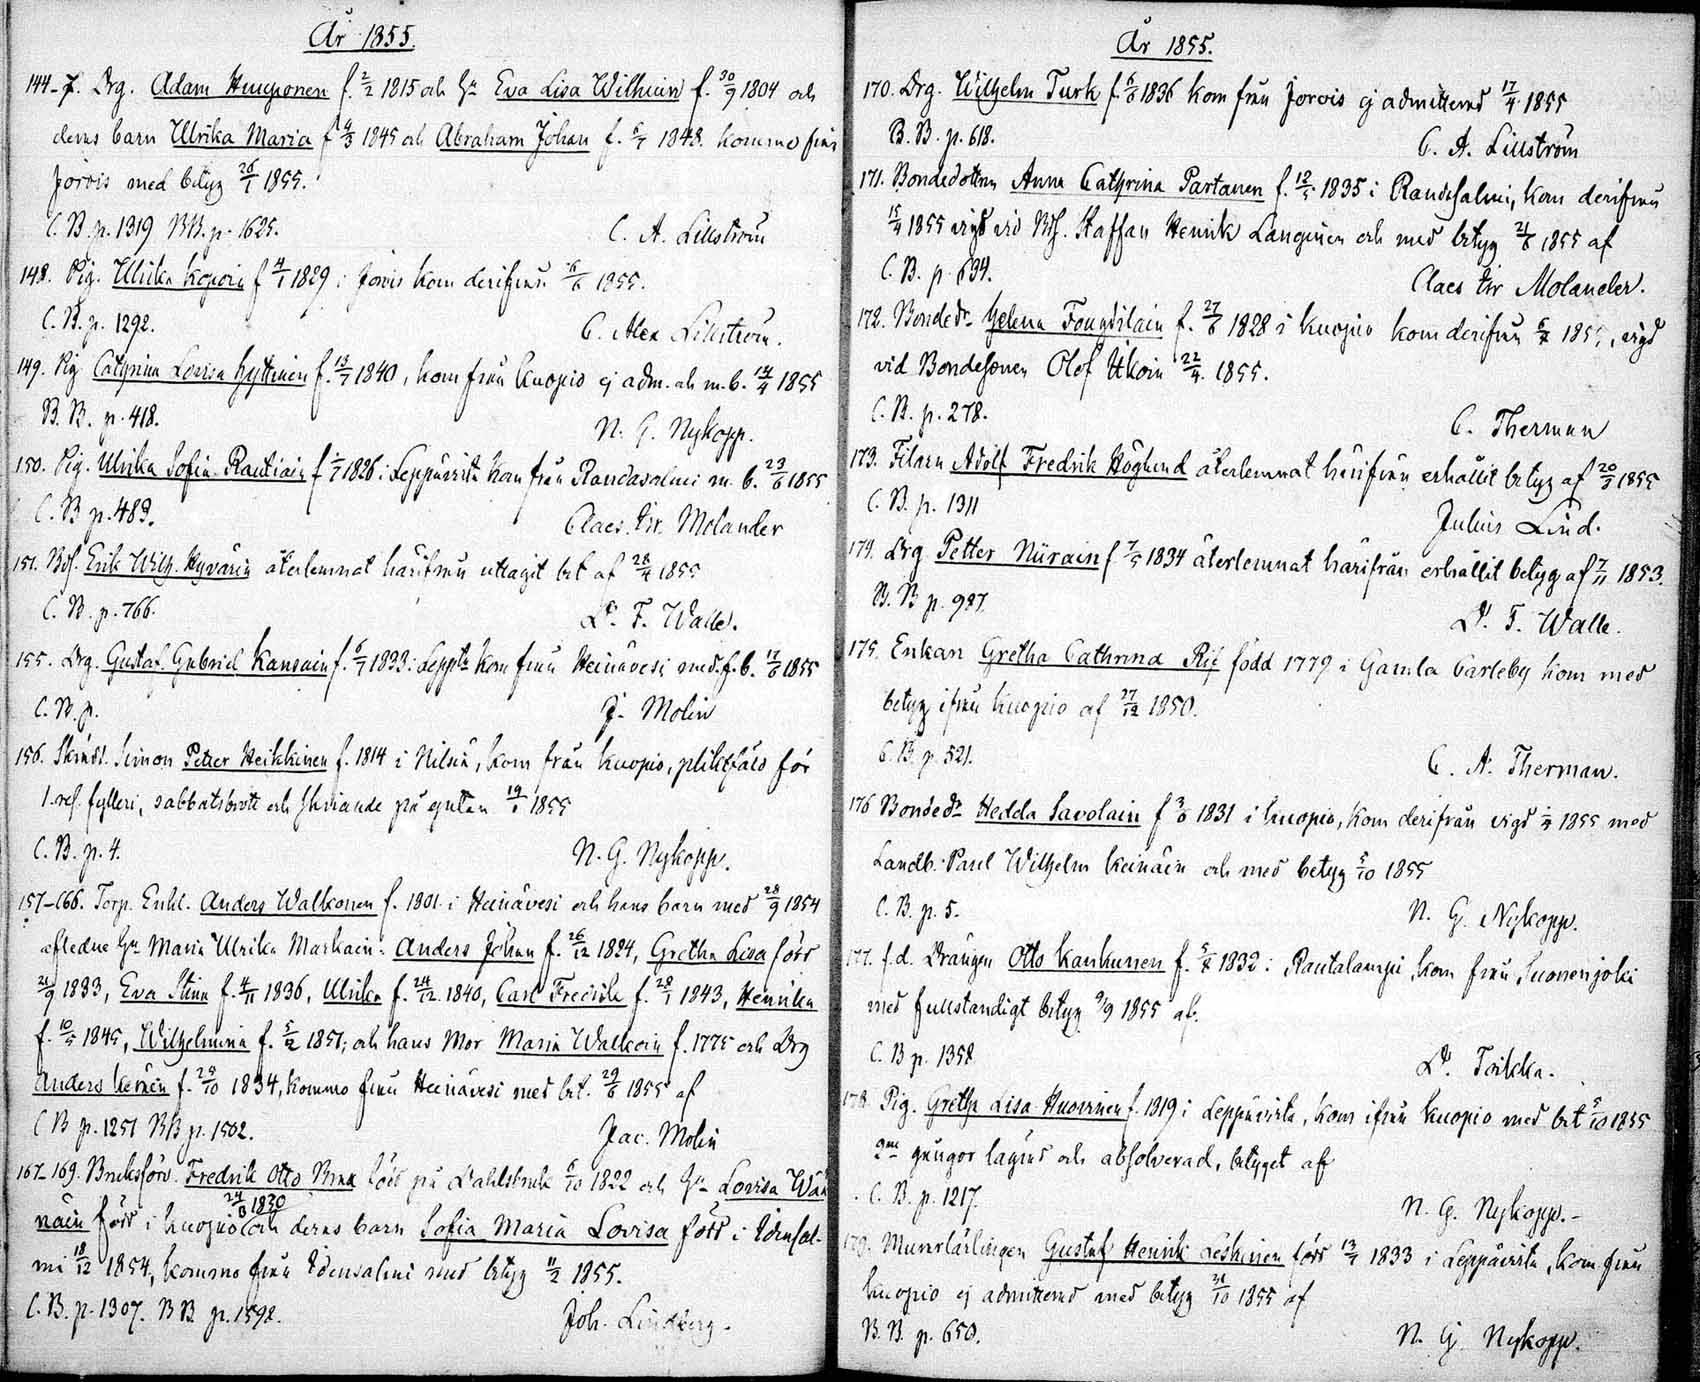 År 1855.
144-7. Drg. Adam Huuponen f. 2/2 1815 och Hu Eva Lisa Wilhuin f. 30/9 1804 och
deras barn Ulrika Maria f 4/3 1845 och Abraham Johan f. 1848. kommo från
Jorois med betyg 26/1 1855.
C. B. p. 1319 BB. p. 1625.
C. A. Lillström
148. Pig. Ulrika Koponin f 4/1 1829 i Jorois kom derifrån 1855.
C. B. p. 1292.
C. Alex Lillström.
149. Pig Cathrina Lovisa Hyttinen f. 13/7 1840, kom från Kuopio ej adm. och m. b. 14/4 1855
B. B. p. 418.
N. G. Nykopp.
150. Pig. Ulrika Sofia Rautiain f 1826 i Leppävirta kom från Randasalmi m. b. 23/6 1855
C. B p. 489.
Claes Gr. Molander
151. Bds. Erik Wilh. Hyvärin återlemnat härifrån uttagit bet af 28/4 1855
C. B. p. 766.
F. Walle.
155. Drg. Gustaf Gabriel Kansain f. 6/7 1833 i Leppta kom från Heinävesi med f. b. 17/6 1855
C. B. p.
J. Molin
156. Simon Petter Heikkinen f. 1814 i Nilsiä, kom från Kuopio, pliktfäld för
1. resf. fylleri, sabbatsbrott och skriande på gatan 1855
C. B. p. 4.
N. G. Nykopp.
157-166. Torp. Enkl. Anders Walkonen f. 1801 i Heinävesi och hans barn med 28/9 1854
afledne Hu Maria Ulrika Markain: Anders Johan f. 26/12 1824, Gretha Lisa född
21/9 1833, Eva Stina f. 4/11 1836, Ulrika f. 24/12 1840, Carl Fredrik f. 28/1 1843, Henrika
f. 10/5 1845, Wilhelmina f. 5/2 1851; och hans Mor Maria Walkoin f. 1775 och Drg
Anders f. 28/10 1834, kommo från Heinävesi med bet. 29/6 1855 af
C B p. 1251 BB p. 1502.
Jac. Molin
167-169. Bruksförv. Fredrik Otto född på Dahlsbruk 6/10 1822 och Hu Lovisa
24/8 1820
näin född i Kuopio och deras barn Sofia Maria Lovisa född i Idensal-
mi 18/12 1854, kommo från Idensalmi med betyg 11/2 1855.
C. B. p. 1307. BB. p. 1598.
Joh. Lindberg.
År 1855.
170. Drg. Wilhelm Turk f. 6/8 1836 kom från Jorois ej admitterad 17/4 1855
B. B. p. 618.
C. A. Lillström
171. Bondedottern Anna Cathrina Partanen f. 12/5 1835 i Randasalmi, kom derifrån
15/4 1855 vigd vid Staffan Henrik Langinen och med betyg 21/6 1855 af
C. B. p. 694.
Claes Gr Molander.
172. Bonded. Helena f. 27/6 1828 i Kuopio kom derifrån 1855, vigd
vid Bondesonen Olof Ukoin 22/4 1855.
C. B. p. 278.
C. Therman
173. Filaren Adolf Fredrik Höglund återlemnat härifrån erhållit betyg af 20/3 1855
C. B. p. 1311
Julius Lind.
174. Drg Petter Niirain f 7/5 1834 återlemnat härifrån erhållit betyg af 7/11 1853.
B. B p. 987.
F. Walle.
175. Enkan Gretha Cathrina född 1779 i Gamla Carleby kom med
betyg ifrån Kuopio af 27/12 1850.
C. B. p. 521.
C. A. Therman.
176 Bonded. Hedda Savolain f 3/8 1831 i Kuopio, kom derifrån vigd 1855 med
Landb. Paul Wilhelm Keinäin och med betyg 5/10 1855
C. B. p. 5.
N. G. Nykopp.
177. f. d. Drängen Otto Kankunen f. 1832 i Rautalampi kom från Suonenjoki
med fullständigt betyg 9/9 1855 af.
C. B p. 1358
Toikka.
178. Pig. Gretha Lisa Huovinen f. 1819 i Leppävirta, kom ifrån Kuopio med bet 5/10 1855
gångor lagförd och absolverad, betyget af
C. B. p. 1217.
N. G. Nykopp.
179. Murarlärlingen Gustaf Henrik Leskinen född 13/7 1833 i Leppävirta, kom från
Kuopio ej admitterad med betyg 31/10 1855 af
B. B. p. 650.
N. G Nykopp.